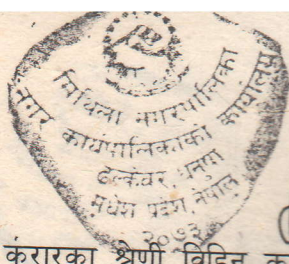 मिथिला नगरपालिका
नगर कार्यपालिकाको कार्यालय
ढल्केवर, धनुषा
मधेश प्रदेश, नेपाल
२०७३
करारका श्रेणी विहिन